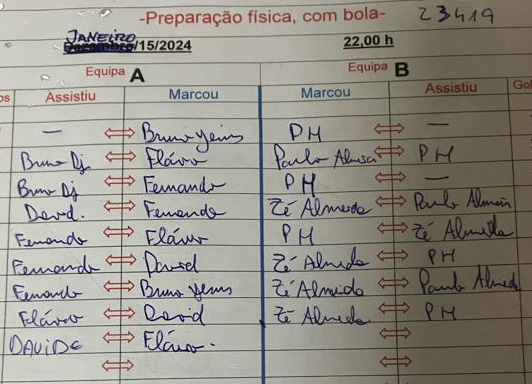 -Preparação física, com bola- 23419
JANEIRO
Dezembro/15/2024 22,00 h
Equipa A Equipa B
os Assistiu Marcou Marcou Assistiu Gol
— ⇔ Bruno Jesus PH ⇔ —
Bruno Dj ⇔ Flávio Paulo Almeida ⇔ PH
Bruno Dj ⇔ Fernando PH ⇔ —
David. ⇔ Fernando Zé Almeida ⇔ Paulo Almeida
Fernando ⇔ Flávio PH ⇔ Zé Almeida
Fernando ⇔ David Zé Almeida ⇔ PH
Fernando ⇔ Bruno Jesus Zé Almeida ⇔ Paulo Almeid
Flávio ⇔ David Zé Almeida ⇔ PH
DAVIDE ⇔ Flávio. ⇔
⇔ ⇔